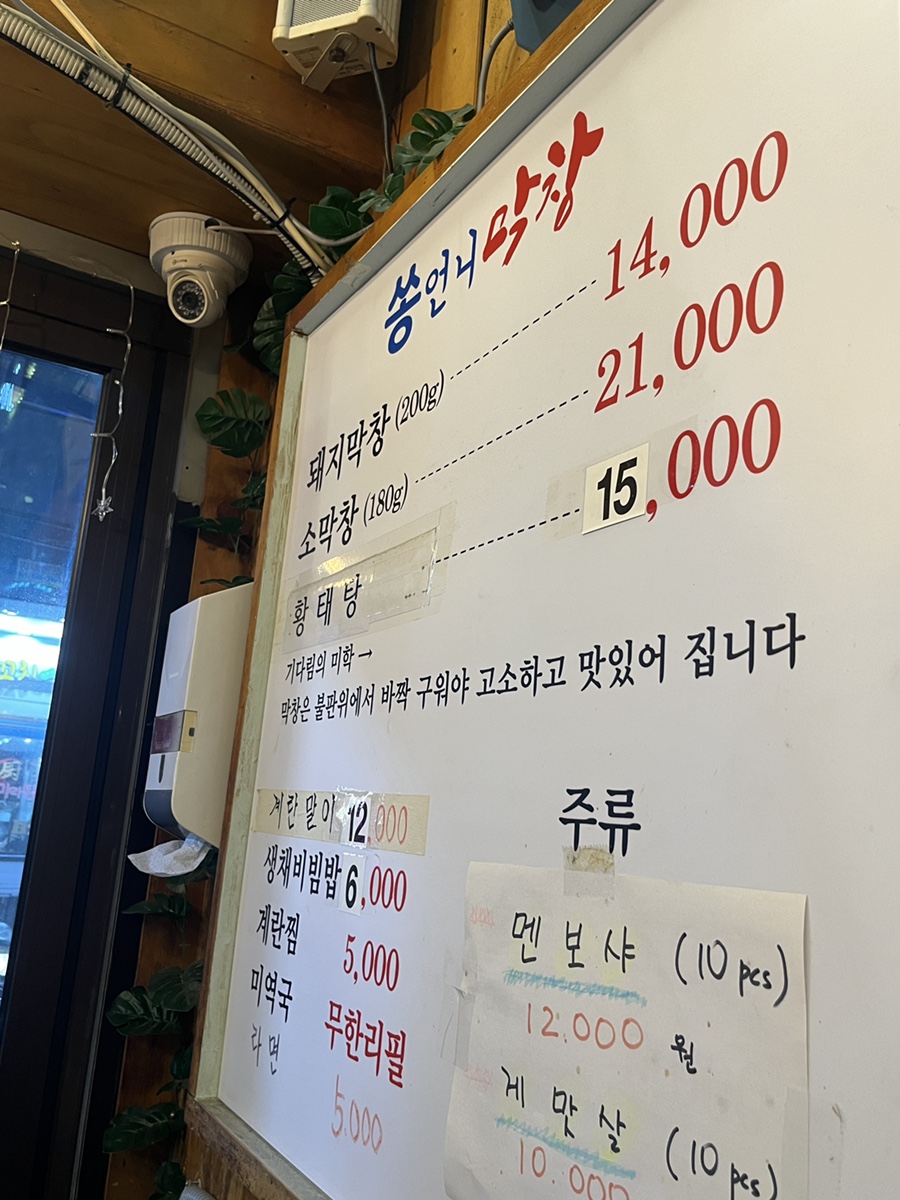 쏭언니막창
돼지막창(200g) 14,000
소막창(180g) 21,000
황태탕 15,000
기다림의 미학→
막창은 불판위에서 바짝 구워야 고소하고 맛있어 집니다
계란말이 12,000
생채비빔밥 6,000
계란찜 5,000
미역국 무한리필
라면 5.000
주류
멘보샤 (10 pcs)
12.000 원
게맛살 (10 pcs)
10.000